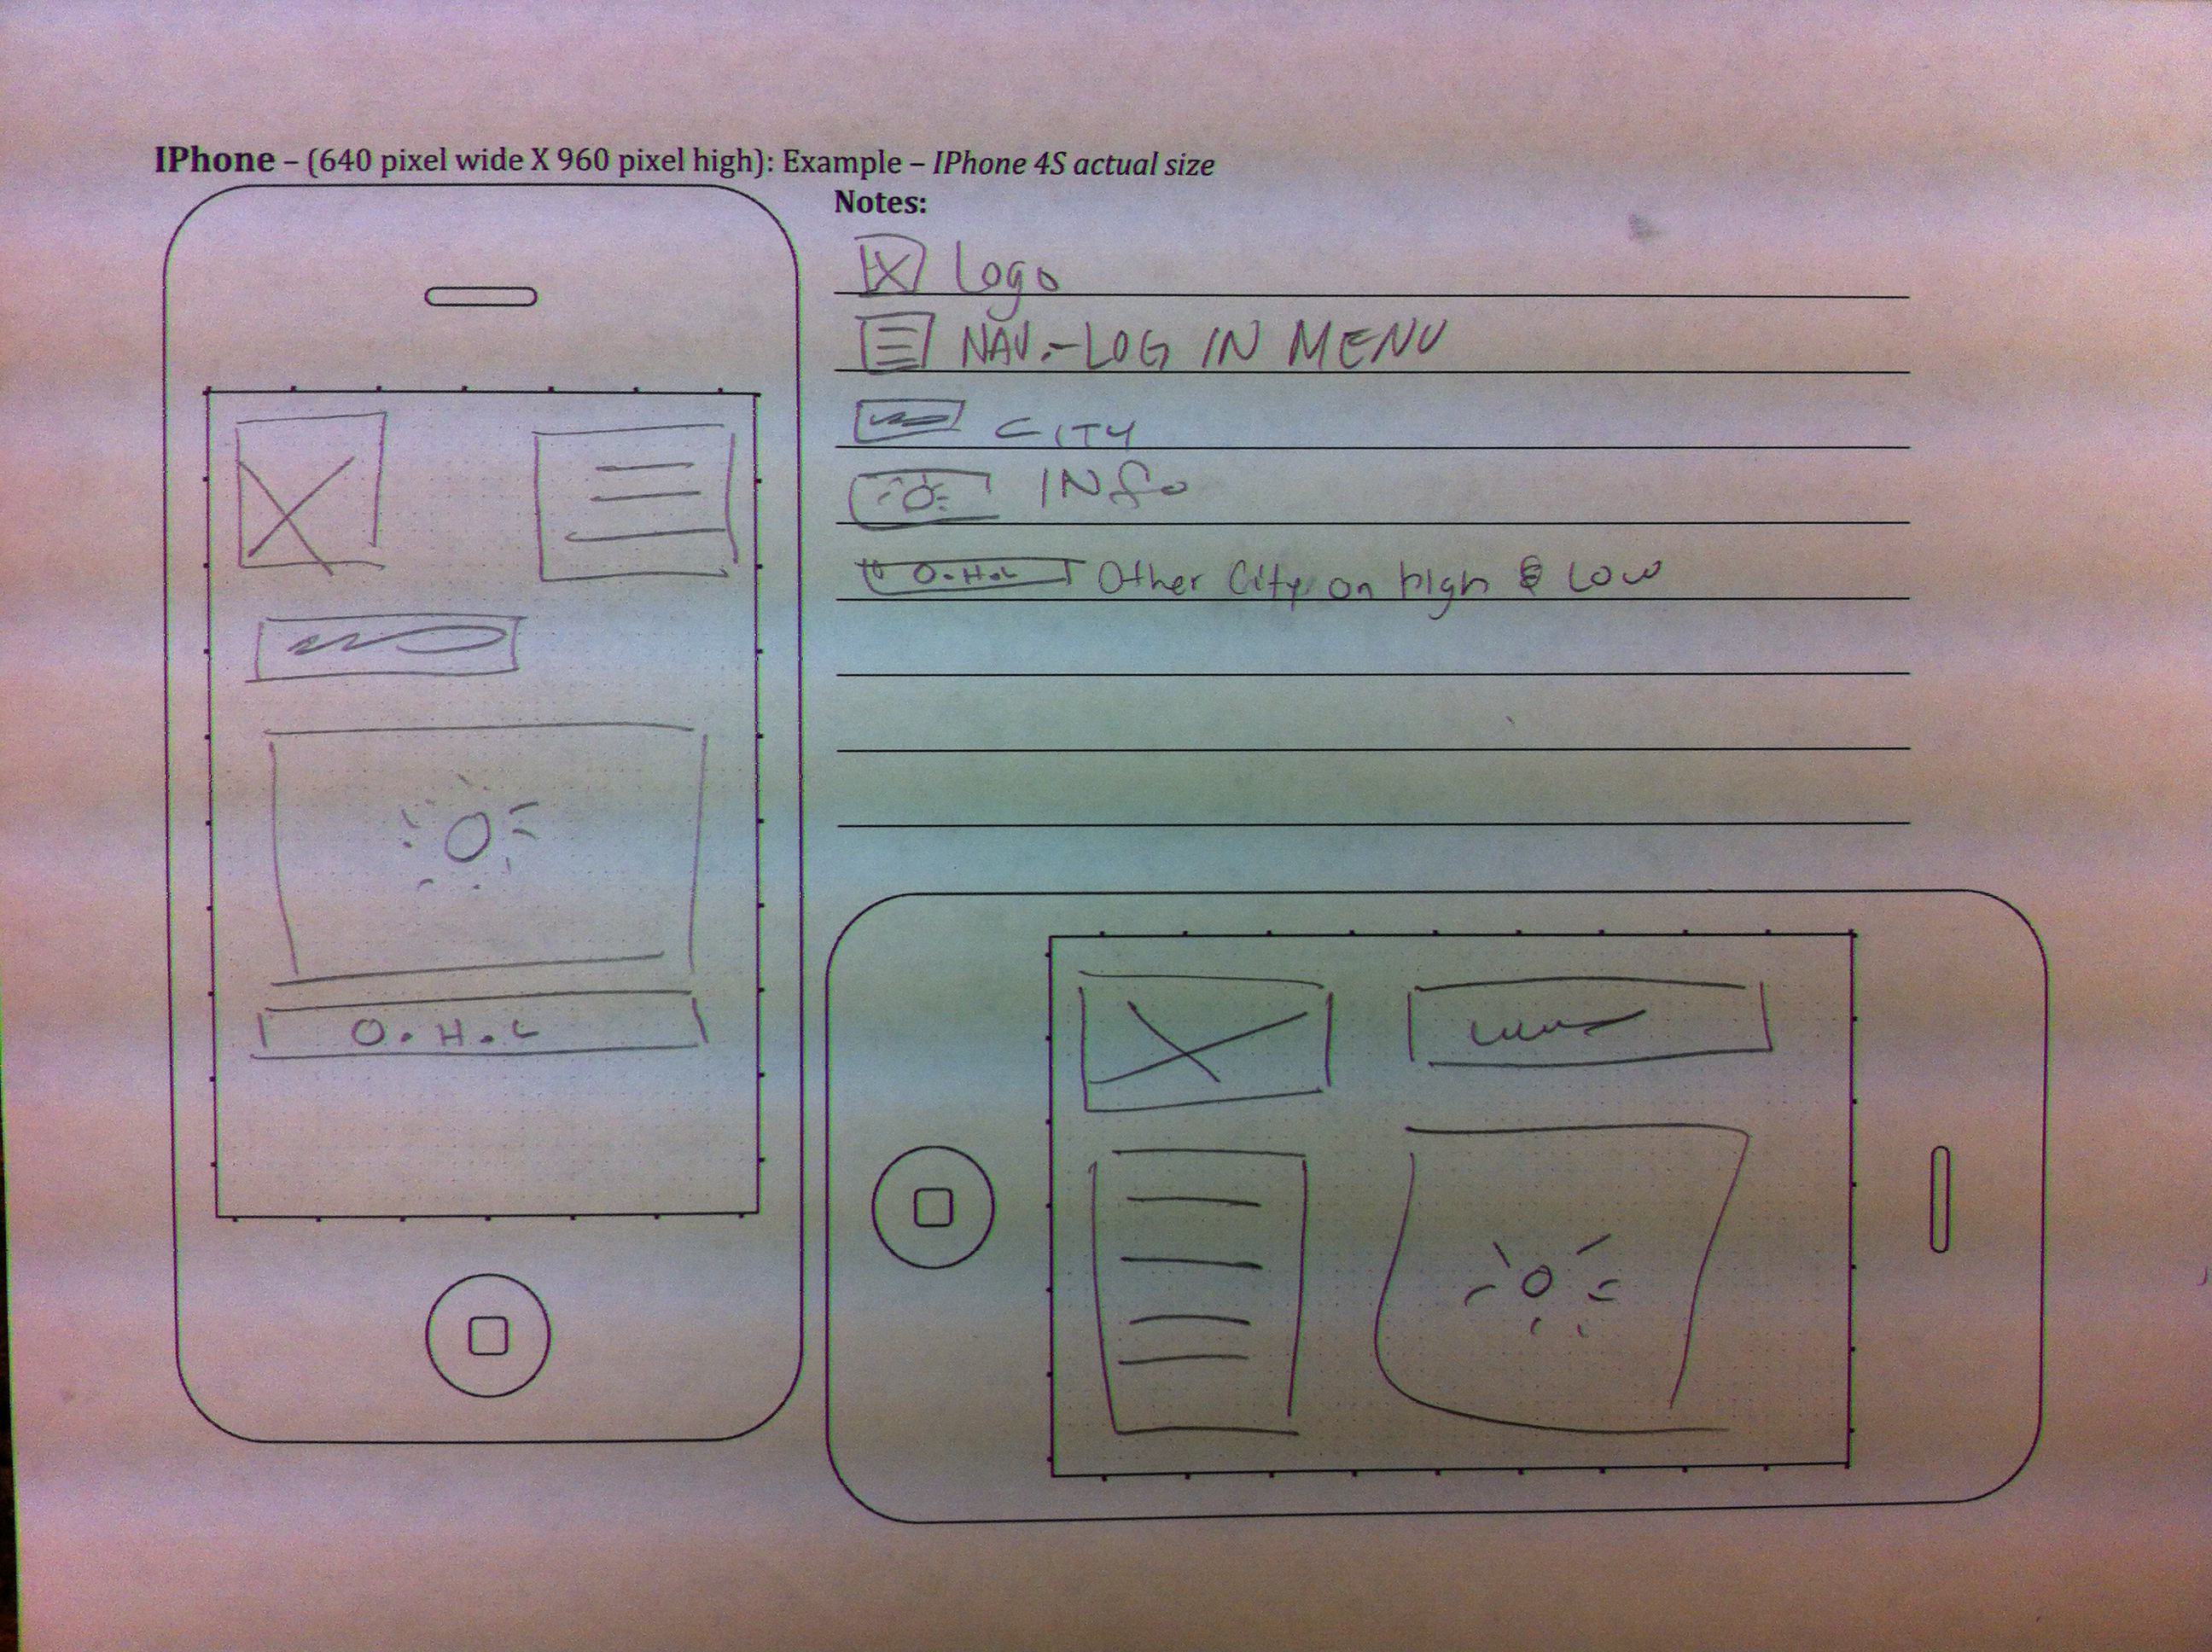 IPhone – (640 pixel wide X 960 pixel high): Example – IPhone 4S actual size
Notes:
Logo
NAV - LOG IN MENU
CITY
INfo
O • H • L Other City on high & Low
O • H • L